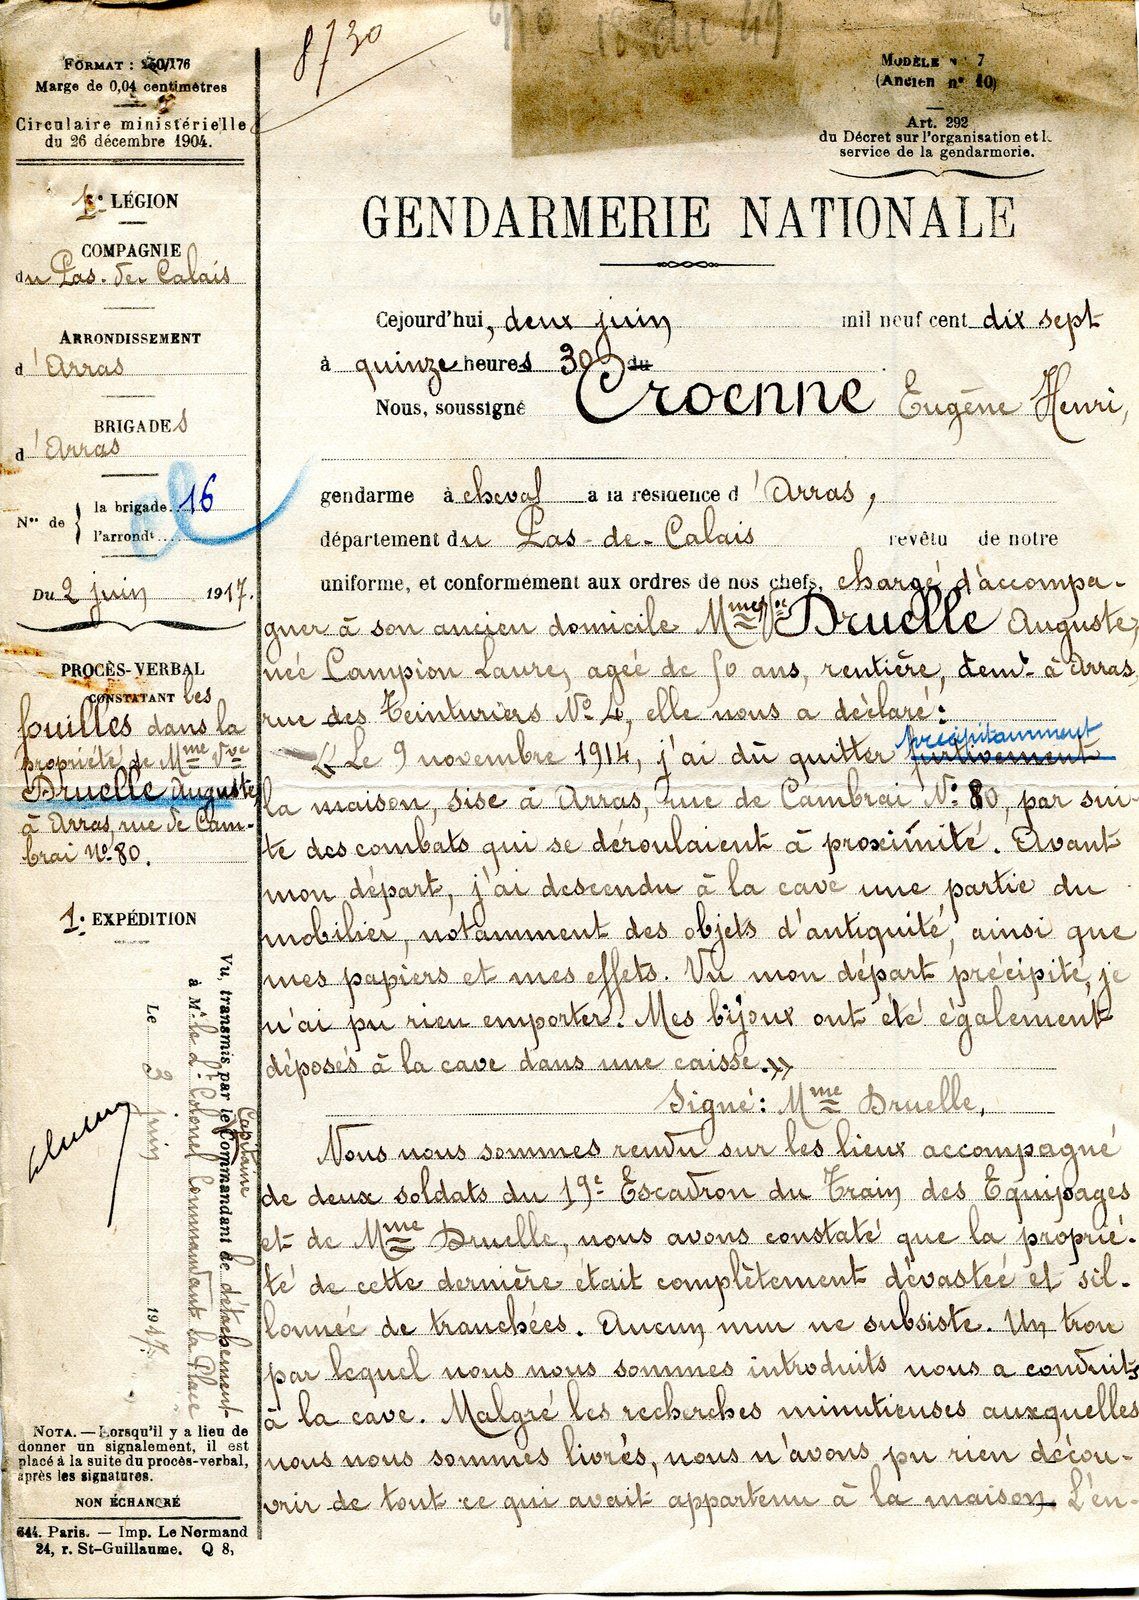 8730
No 18 du 49
FORMAT : 230/176
Marge de 0,04 centimètres
Circulaire ministérielle
du 26 décembre 1904.
MODÈLE N° 7
(Ancien n° 10)
Art. 292
du Décret sur l'organisation et le
service de la gendarmerie.
LÉGION
COMPAGNIE
du Pas-de-Calais
ARRONDISSEMENT
d'Arras
BRIGADES
d'Arras
Nos de { la brigade 16
l'arrondt
Du 2 juin 1917.
PROCÈS-VERBAL
CONSTATANT les
fouilles dans la
propriété de Mme Vve
Druelle Auguste
à Arras, rue de Cam-
brai No 80.
1e EXPÉDITION
Vu, transmis par le Capitaine Commandant le détachement
à Mr le Lt Colonel Commandant la Place
Le 3 juin 1917.
NOTA. — Lorsqu'il y a lieu de
donner un signalement, il est
placé à la suite du procès-verbal,
après les signatures.
NON ÉCHANCRÉ
644. Paris. — Imp. Le Normand
24, r. St-Guillaume. Q 8,
GENDARMERIE NATIONALE
Cejourd'hui, deux juin mil neuf cent dix sept
à quinze heures 30 du
Nous, soussigné Croenne Eugène Henri,
gendarme à cheval à la résidence d'Arras,
département du Pas-de-Calais revêtu de notre
uniforme, et conformément aux ordres de nos chefs, chargé d'accompa-
gner à son ancien domicile Mme Vve Druelle Auguste,
née Campion Laure, ageé de 50 ans, rentière, demt à Arras,
rue des Teinturiers No 4, elle nous a déclaré :
« Le 9 novembre 1914, j'ai dû quitter furtivement précipitamment
la maison, sise à Arras, rue de Cambrai No 80, par sui-
te des combats qui se déroulaient à proximité. Avant
mon départ, j'ai descendu à la cave une partie du
mobilier, notamment des objets d'antiquité, ainsi que
mes papiers et mes effets. Vu mon départ précipité, je
n'ai pu rien emporter. Mes bijoux ont été également
déposés à la cave dans une caisse. »
Signé : Mme Druelle.
Nous nous sommes rendu sur les lieux accompagné
de deux soldats du 19e Escadron du Train des Equipages
et de Mme Druelle, nous avons constaté que la proprié-
té de cette dernière était complètement dévasteé et sil-
lonnée de tranchées. Aucun mur ne subsiste. Un trou
par lequel nous nous sommes introduits nous a conduits
à la cave. Malgré les recherches minutieuses auxquelles
nous nous sommes livrés, nous n'avons pu rien décou-
vrir de tout ce qui avait appartenu à la maison. L'en-